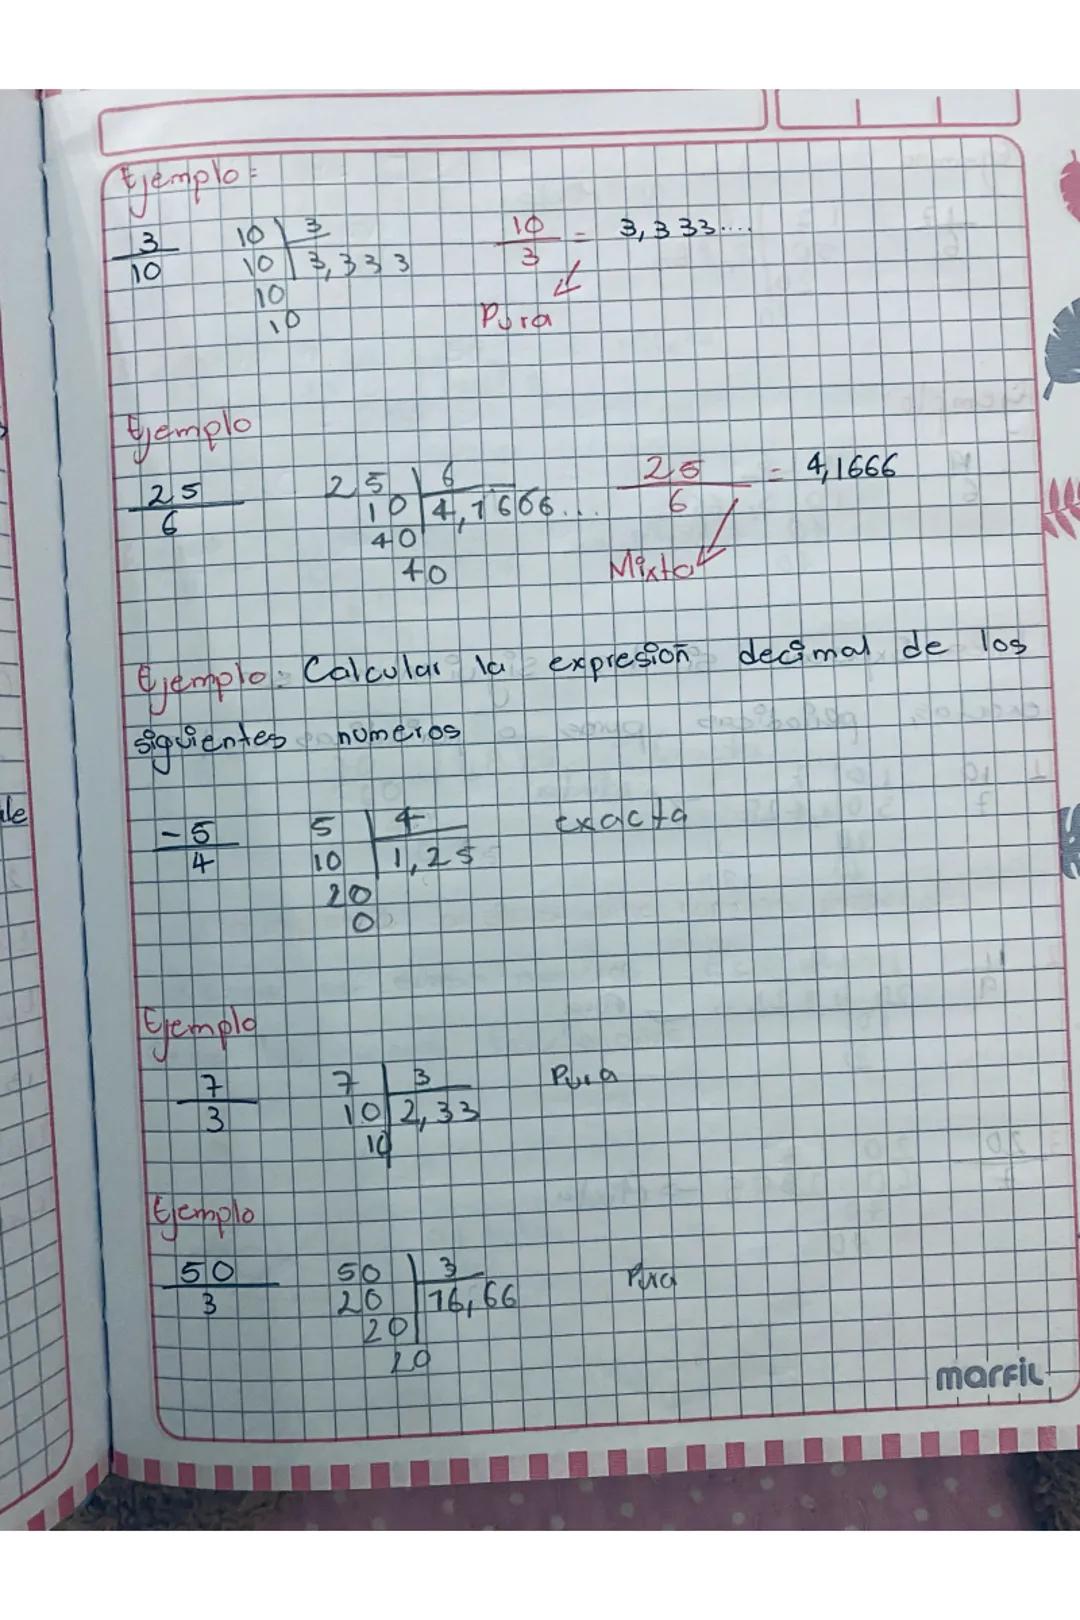 Ejemplo:
3 10 3 10 = 3,333....
10 10 3,333 3
10
10 Pura
Ejemplo
25 25 6 25 = 4,1666
6 10 4,1666... 6
40
40 Mixto
Ejemplo: Calcular la expresion decimal de los
siguientes numeros
-5 5 4 Exacta
4 10 1,25
20
0
Ejemplo
7 7 3 Pura
3 10 2,33
10
Ejemplo
50 50 3 Pura
3 20 16,66
20
20
marfil